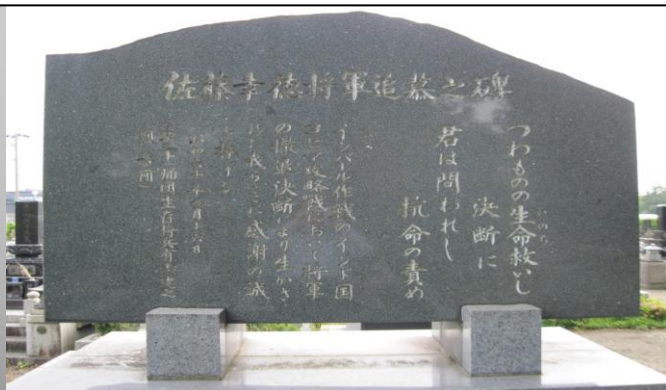 佐藤幸徳将軍追慕之碑
つわものの生命救いし
いのち
決断に
君は問われし
抗命の責め
インパール作戦のインド国
コヒマ攻略戦において将軍
の撤退決断により生かさ
れし我らここに感謝の誠
を捧
昭和六十年月十六日
師団生存将兵有志建之
師団